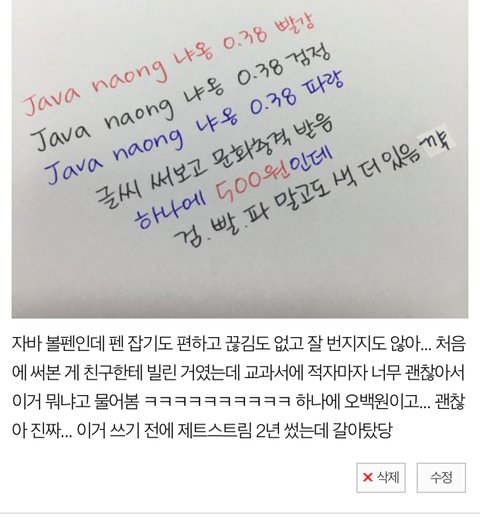 Java naong 냐옹 0.38 빨강
Java naong 냐옹 0.38 검정
Java naong 냐옹 0.38 파랑
글씨 써보고 문화충격 받음
하나에 500원인데
검.빨.파 말고도 색 더 있음 꺅
자바 볼펜인데 펜 잡기도 편하고 끊김도 없고 잘 번지지도 않아... 처음
에 써본 게 친구한테 빌린 거였는데 교과서에 적자마자 너무 괜찮아서
이거 뭐냐고 물어봄 ㅋㅋㅋㅋㅋㅋㅋㅋㅋㅋ 하나에 오백원이고... 괜찮
아 진짜... 이거 쓰기 전에 제트스트림 2년 썼는데 갈아탔당
삭제 수정